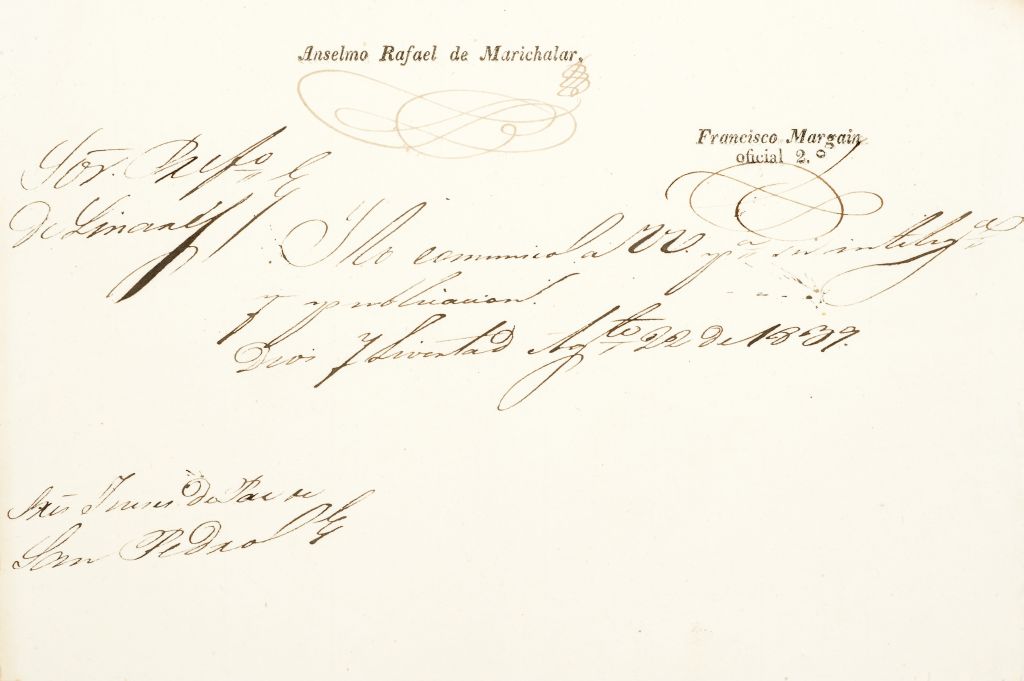 Anselmo Rafael de Marichalar.
Francisco Margain
oficial 2.º
Sōr. Prefo
de Linares
Y lo comunico a VV. pa. su intelga
y publicacion.
Dios y Livertad Agto 22 de 1839.
Jueces de Paz de
San Pedro